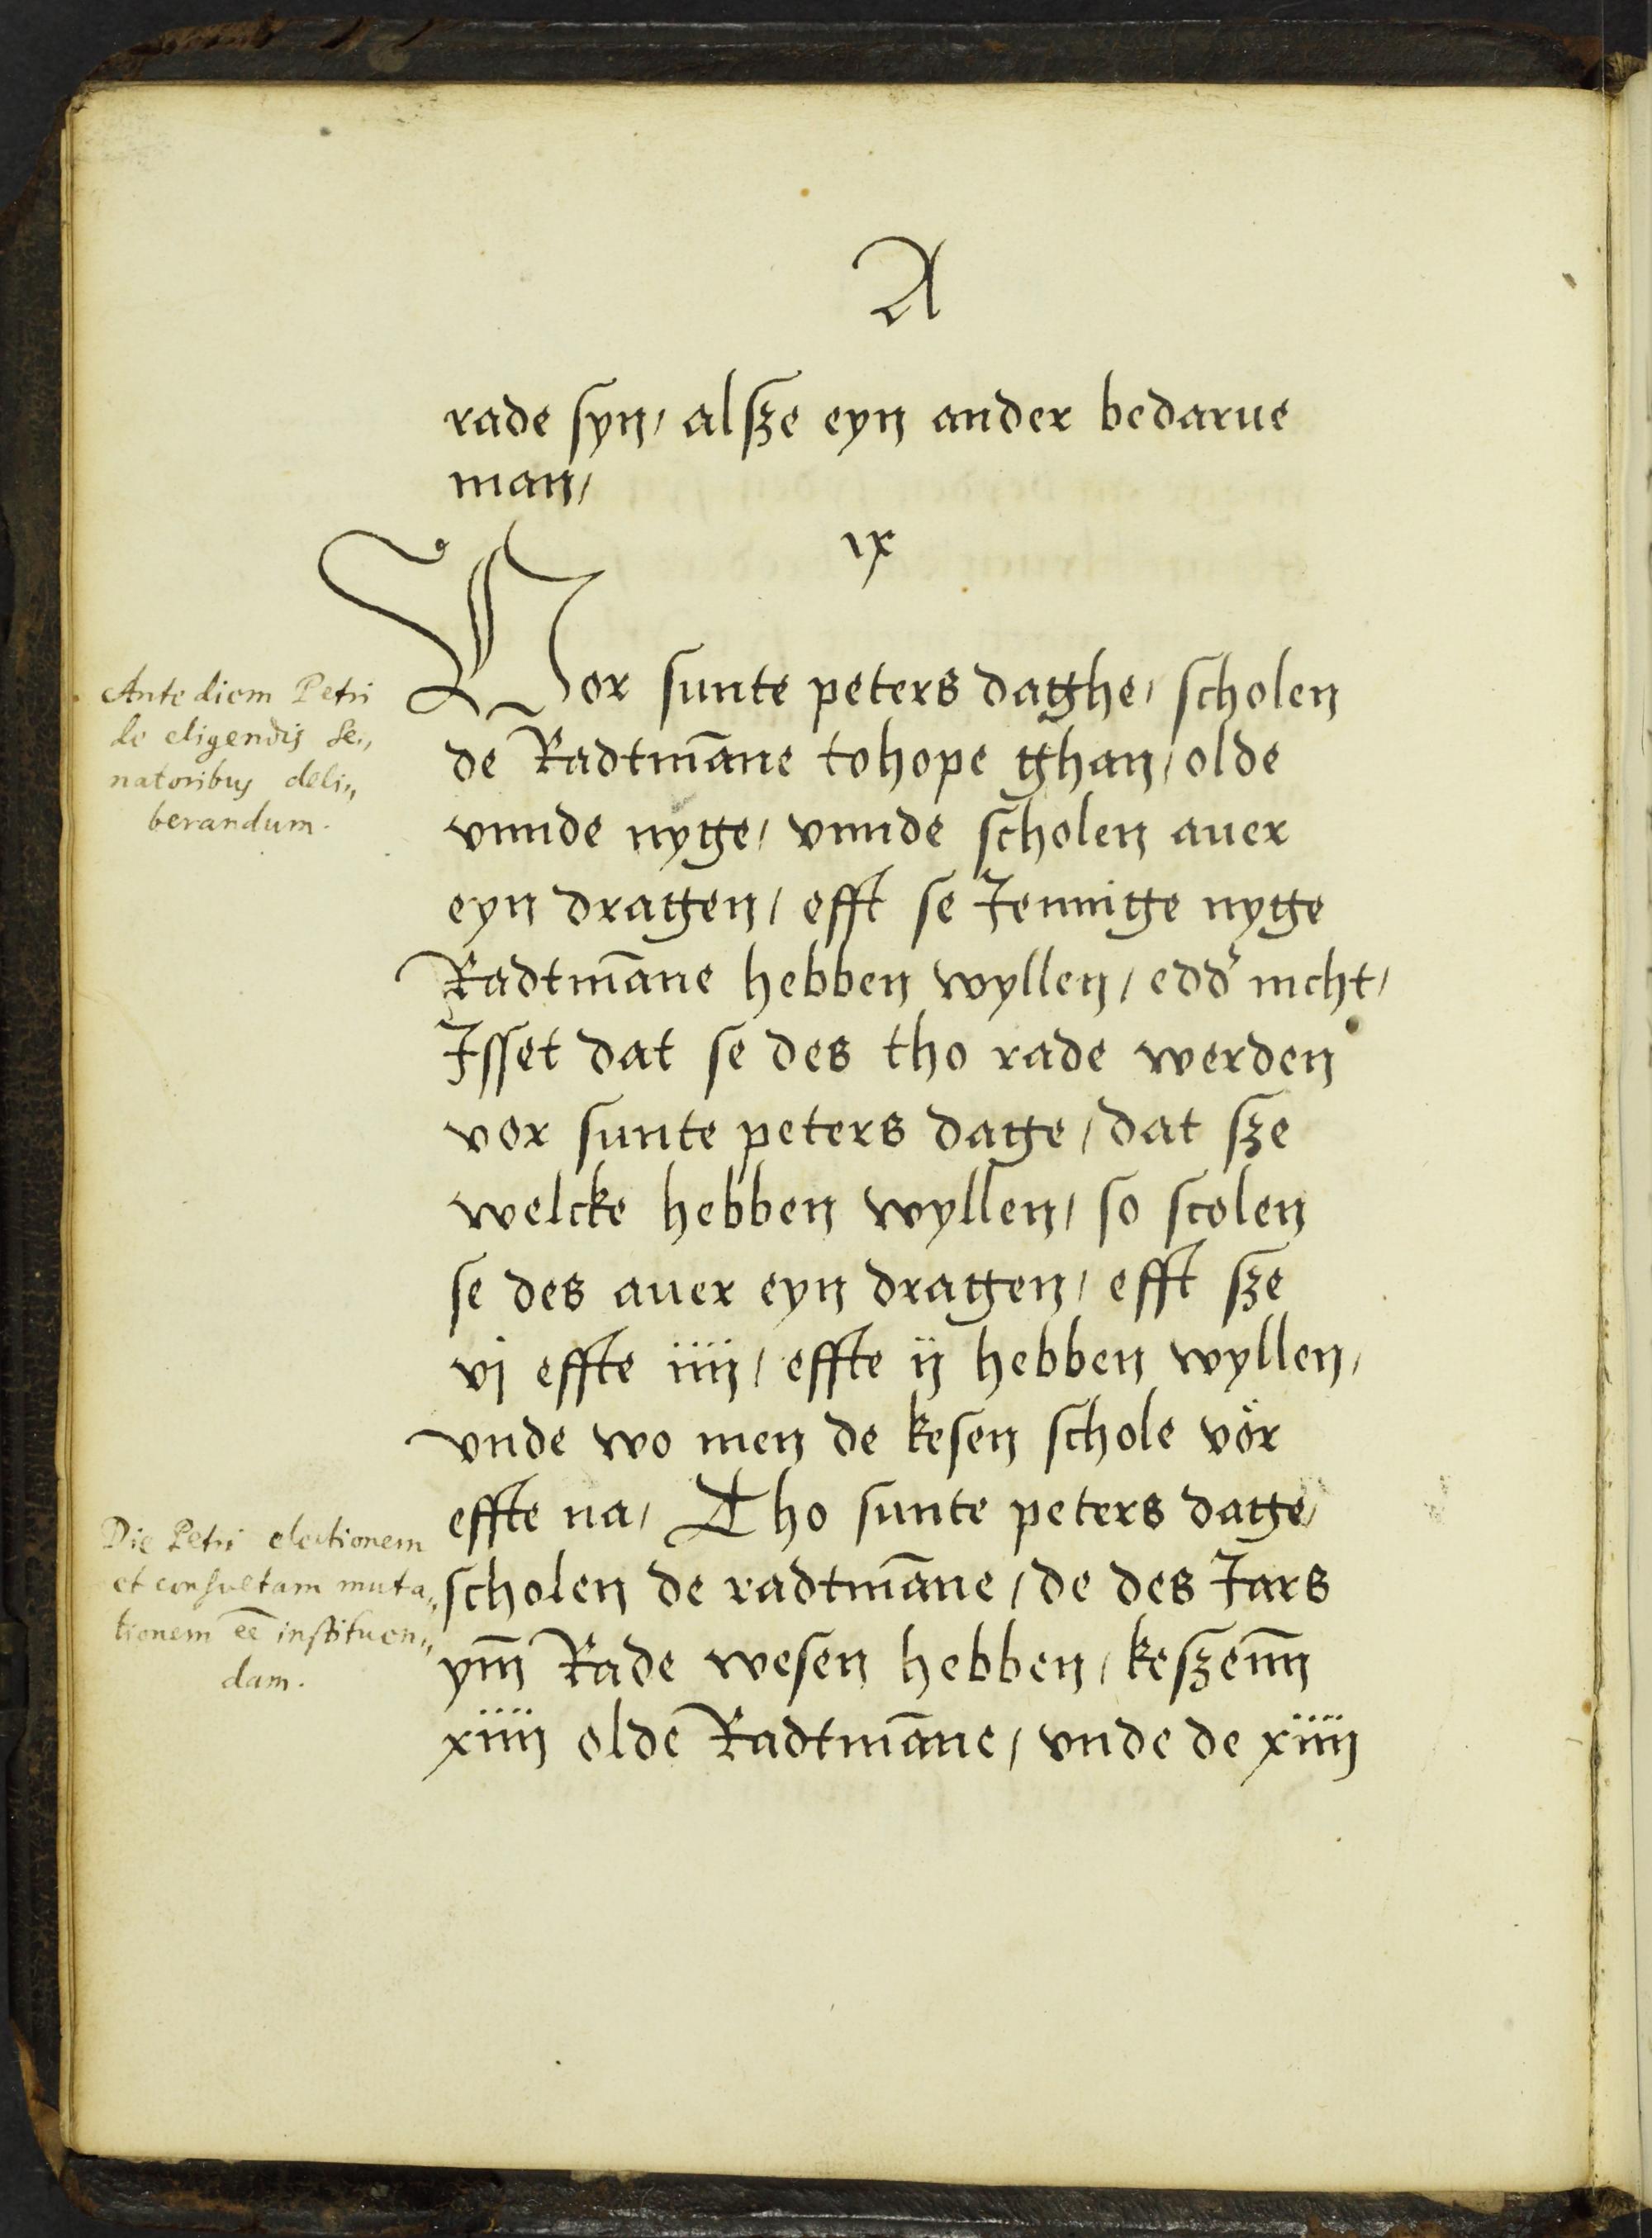 A
rade syn, alsze eyn ander bedarue
man,
ıx
Vor sunte peters daghe, scholen
de Radtmãne tohope ghan, olde
vnnde nyge, vnnde scholen auer
eyn dragen, efft se Jennige nyge
Radtmãne hebben wyllen, edd' nicht,
Jsset dat se des tho rade werden
vor sunte peters dage, dat sze
welcke hebben wyllen, so scolen
se des auer eyn dragen, efft sze
vj effte iiij, effte ij hebben wyllen,
vnde wo men de kesen schole vör
effte na, Tho sunte peters dage,
scholen de radtmãne, de des Jars
ym̃ Rade wesen hebben, keszenn̄
xiiij olde Radtmãne, vnde de xiiij
Ante diem Petri
de eligendis Se„
natoribus deli„
berandum.
Die Petri electionem
et consultam muta„
tionem ee̅ instituen„
dam.